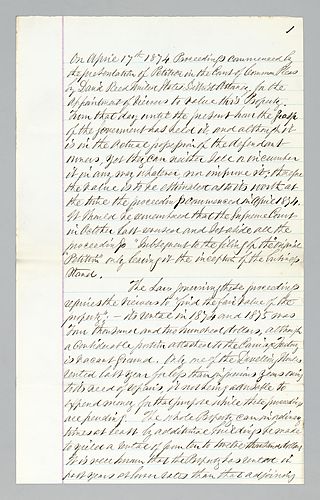 1
On April 17th 1874 Proceedings commenced by
the presentation of Petition in the Court of Common Pleas
by David Reed United States District Attorney, for the
Appointment of Viewers to value this Property.
From that day until the present hour the grasp
of the government has held it, and although it
is in the actual possession of the defendant
owners, yet they can neither sell or incumber
it in any way whatever, nor improve it, therefore
the value is to be estimated as to its worth at
the time the proceedings commenced in April 1874.
It should be remembered that the Supreme Court
in October last reversed and set aside all the
proceedings "subsequent to the filing of the
Petition" only leaving at the inception of the
Stand.
The Law governing these proceedings
requires the Viewers to "find the fair value of the
property" - its rental in 1874 and 1875 was
thousand and two hundred dollars, although
a considerable portion attached to the
is vacant ground. Only one of the Dwelling Houses
rented last year for less than previous years owing
to its need of repairs, it not being advisable to
expend money for that purpose while these proceedings
are pending. The whole Property can in ordinary
times at least by additional buildings be made
to yield a rental of from ten to twelve thousand dollars
It is well known that the Property has rented in
past years at lower rates than the adjoining